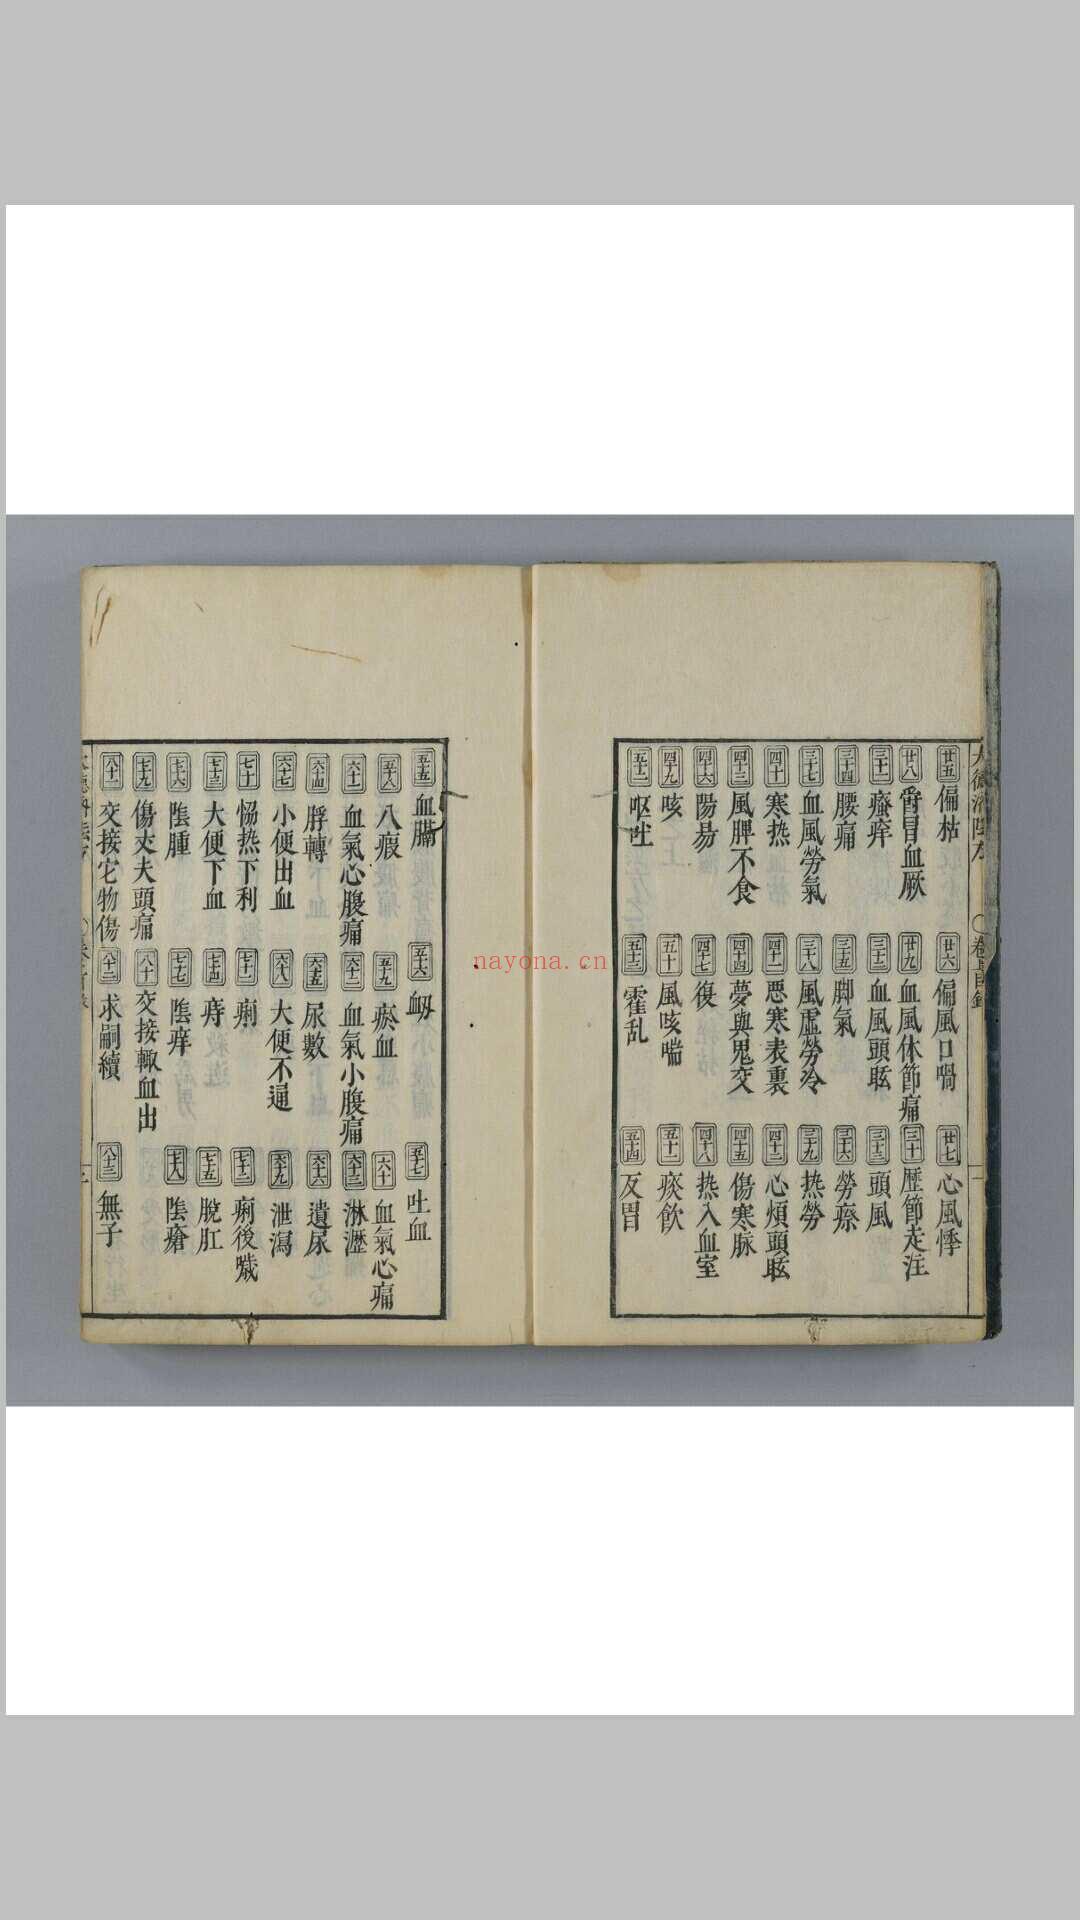 廿五 偏枯 廿六 偏風口喎 廿七 心風悸
廿八 欝冒血厥 廿九 血風体節痛 三十 歷節走注
三十一 癮痒 三十二 血風頭眩 三十三 頭風
三十四 腰痛 三十五 脚氣 三十六 勞瘵
三十七 血風勞氣 三十八 風虛勞冷 三十九 热勞
四十 寒热 四十一 恶寒表裏 四十二 心煩頭眩
四十三 風脾不食 四十四 夢與鬼交 四十五 傷寒脉
四十六 陽易 四十七 復 四十八 热入血室
四十九 咳 五十 風咳喘 五十一 痰飲
五十二 呕吐 五十三 霍乱 五十四 反胃
五十五 血膈 五十六 衂 五十七 吐血
五十八 八瘕 五十九 瘀血 六十 血氣心痛
六十一 血氣心腹痛 六十二 血氣小腹痛 六十三 淋瀝
六十四 脬轉 六十五 尿數 六十六 遺尿
六十七 小便出血 六十八 大便不通 六十九 泄瀉
七十 恊热下利 七十一 痢 七十二 痢後噦
七十三 大便下血 七十四 痔 七十五 脫肛
七十六 陰腫 七十七 陰痒 七十八 陰瘡
七十九 傷丈夫頭痛 八十 交接輙血出
八十一 交接它物傷 八十二 求嗣續 八十三 無子
nayona.cn